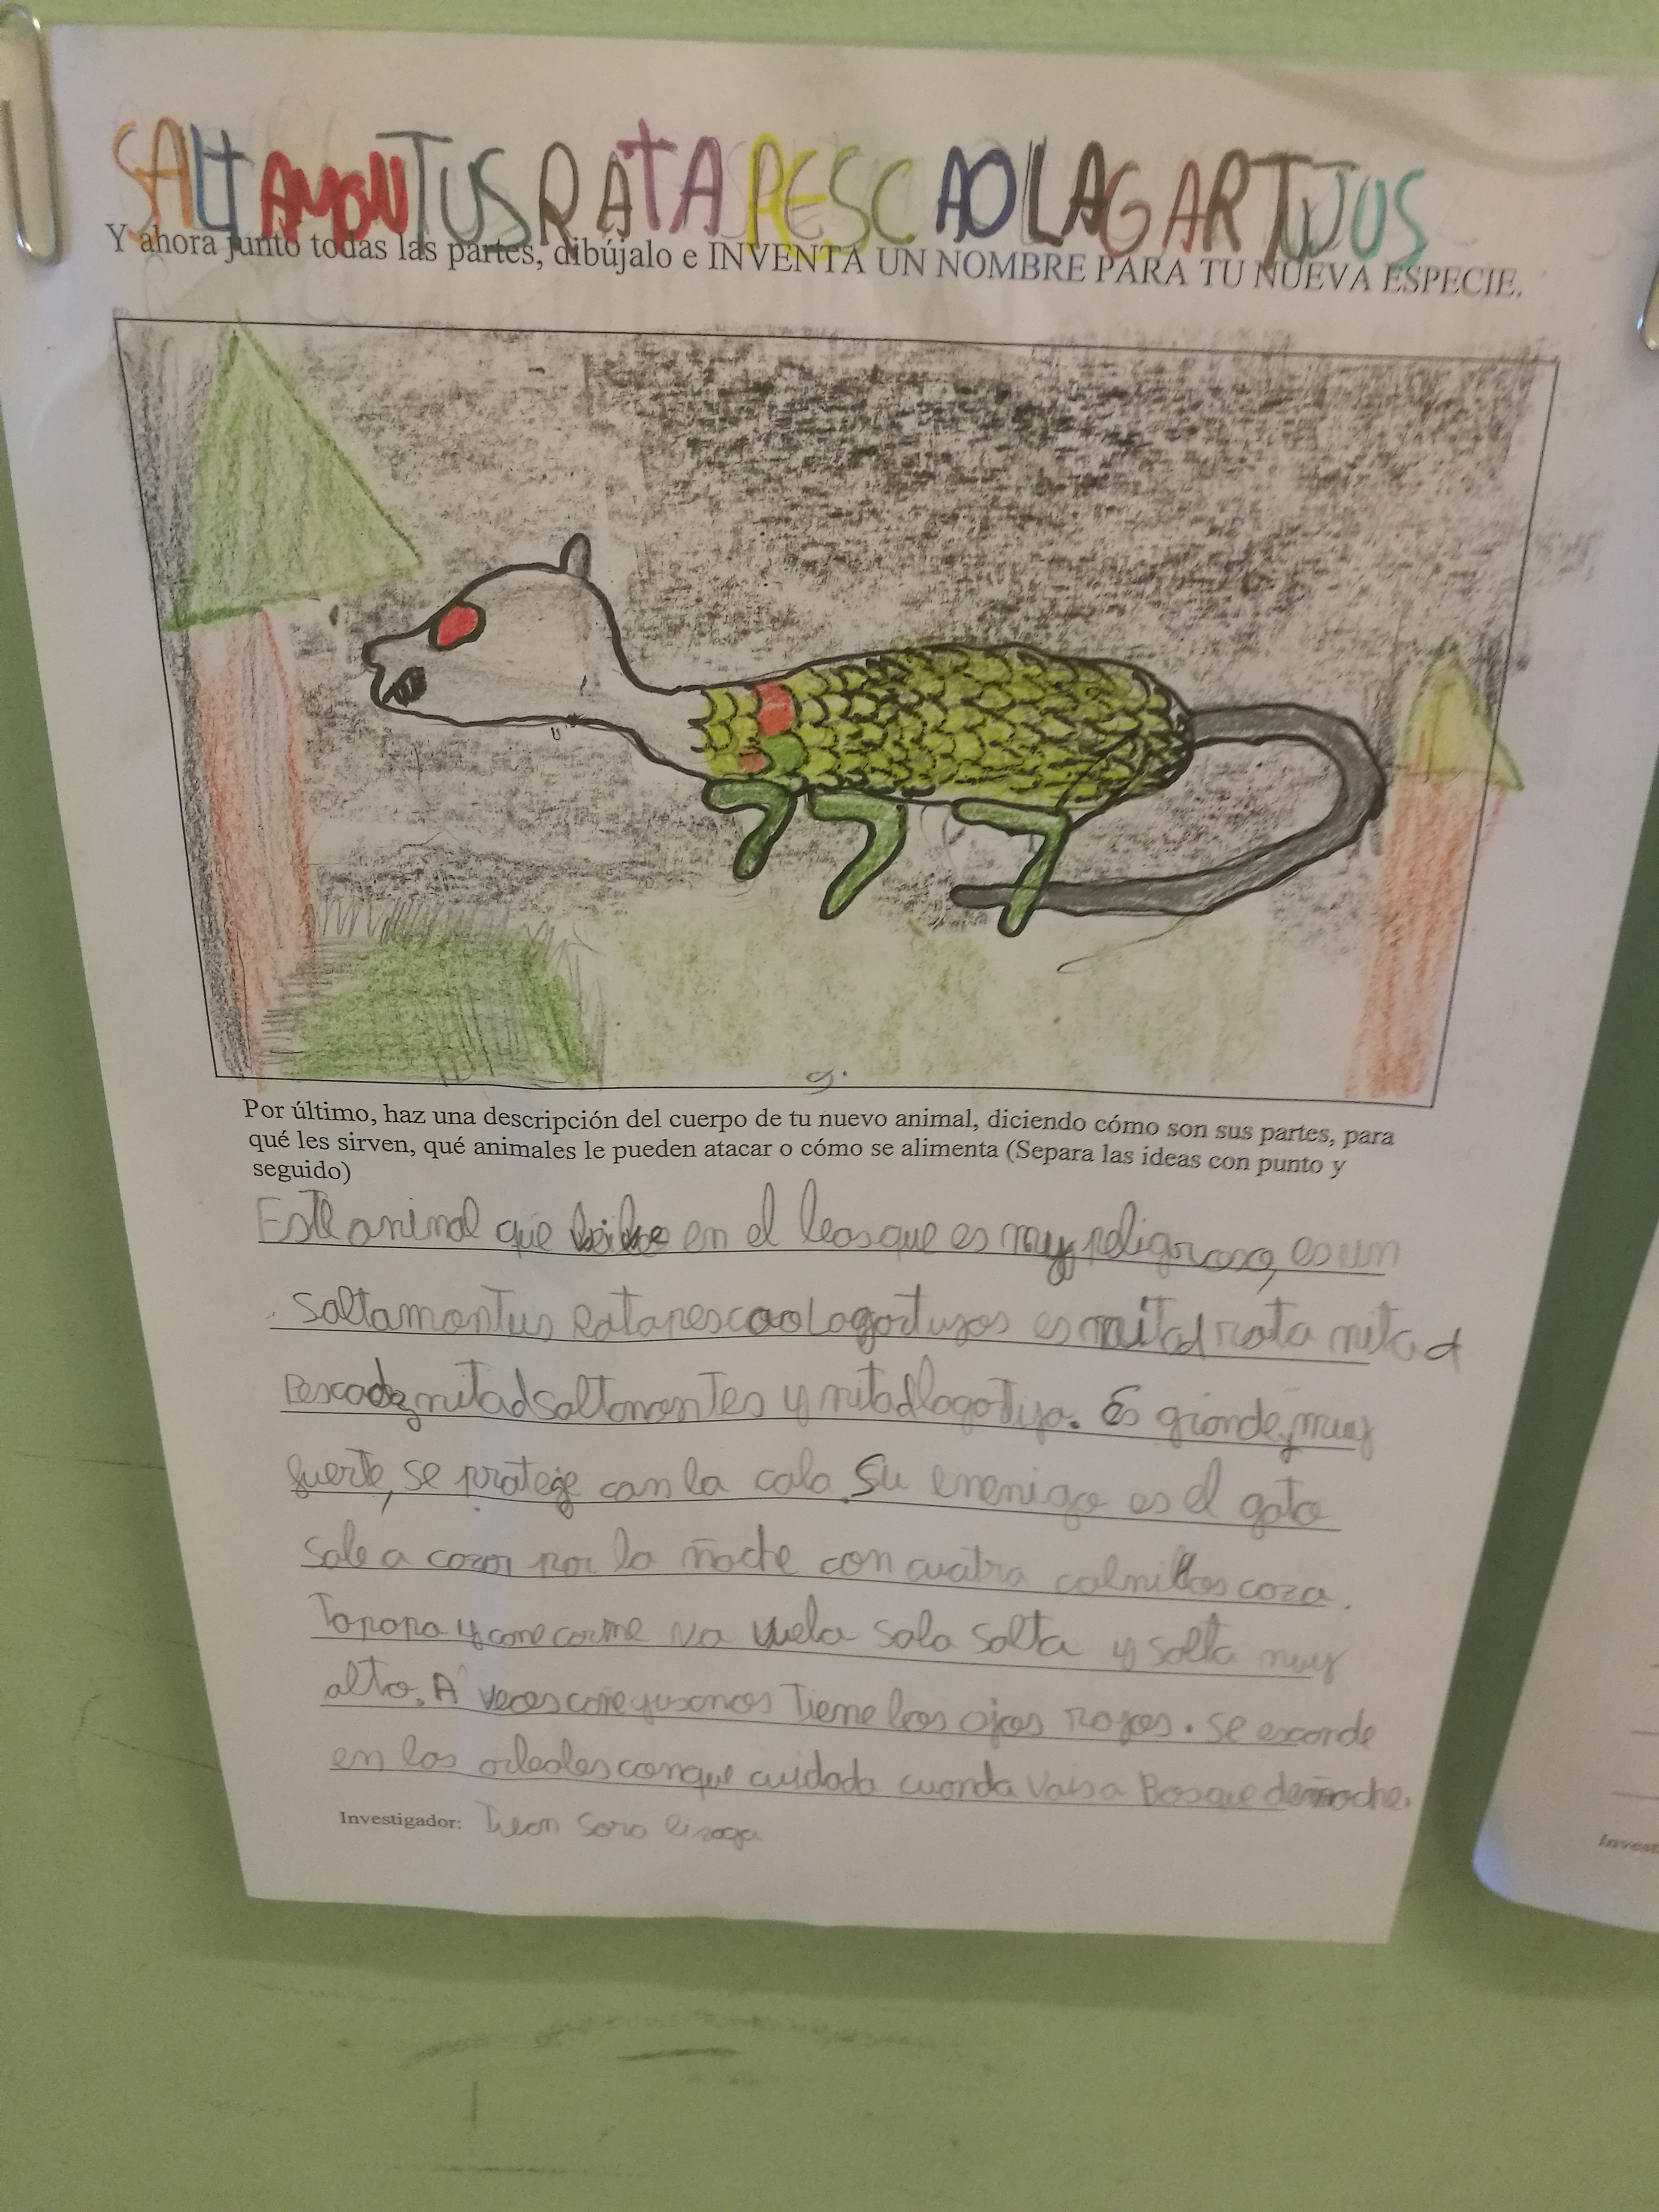 SALTAMONTUSRATAPESCAOLAGARTIJUS
Y ahora junto todas las partes, dibújalo e INVENTA UN NOMBRE PARA TU NUEVA ESPECIE.
Por último, haz una descripción del cuerpo de tu nuevo animal, diciendo cómo son sus partes, para
qué les sirven, qué animales le pueden atacar o cómo se alimenta (Separa las ideas con punto y
seguido)
Este animal que en el bosque es muy peligroso, es un
saltamontus ratapescaolagartijos es mitad rata mitad
pescado, mitad saltamontes y mitad lagartija. Es grande, muy
fuerte, se protege con la cola. Su enemigo es el gato
sale a cazar por la noche con cuatro colmillos caza.
y come carne no vuela solo salta y salta muy
alto. A veces come gusanos tiene los ojos rojos. se esconde
en los arboles conque cuidado cuando vais a Bosque de noche.
Investigador:
Invest